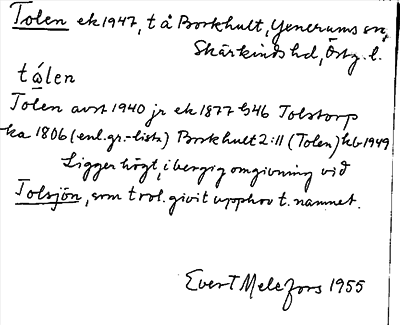 Tolen ek 1947, t å Borkhult, Yxnerums sn,
Skärkinds hd, Östg. l.
tå̱len
Tolen avst 1940 jr ek 1877 b46 Tolstorp
ka 1806 (enl. gr.-listn) Borkhult 2:11 (Tolen) kb 1949
Ligger högt, i bergig omgivning vid
Tolsjön, som trol. givit upphov t. namnet.
Evert Melefors 1955